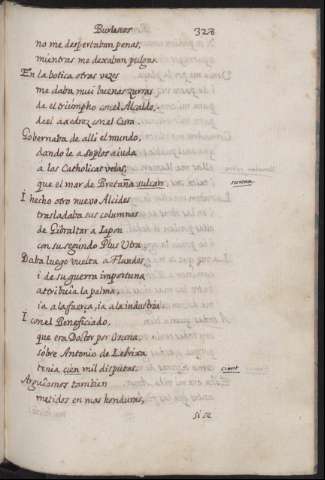 Burlescos
328
no me despertaban penas,
mientras me dexaban pulgas.
En la botica otras vezes
me daba mui buenas zurras
de el triumpho con el Alcalde,
de el axedrez con el Cura.
Gobernaba de alli el mundo,
dandole a soplos aiuda
a los Catholicas velas,
que el mar de Bretaña sulcan.
surcan.
I hecho otro nuevo Alcides
trasladaba sus columnas
de Gibraltar a Iapon
con su segundo Plus Ultra
Daba luego vuelta a Flandes
i de su guerra importuna
attribuia la palma,
ia a la fuerça, ia a la industria.
I con el Beneficiado,
que era Doctor por Osuna,
sobre Antonio de Lebrixa
tenia cien mil disputas.
cient
Arguiamos tambien
metidos en mas honduras,
si se